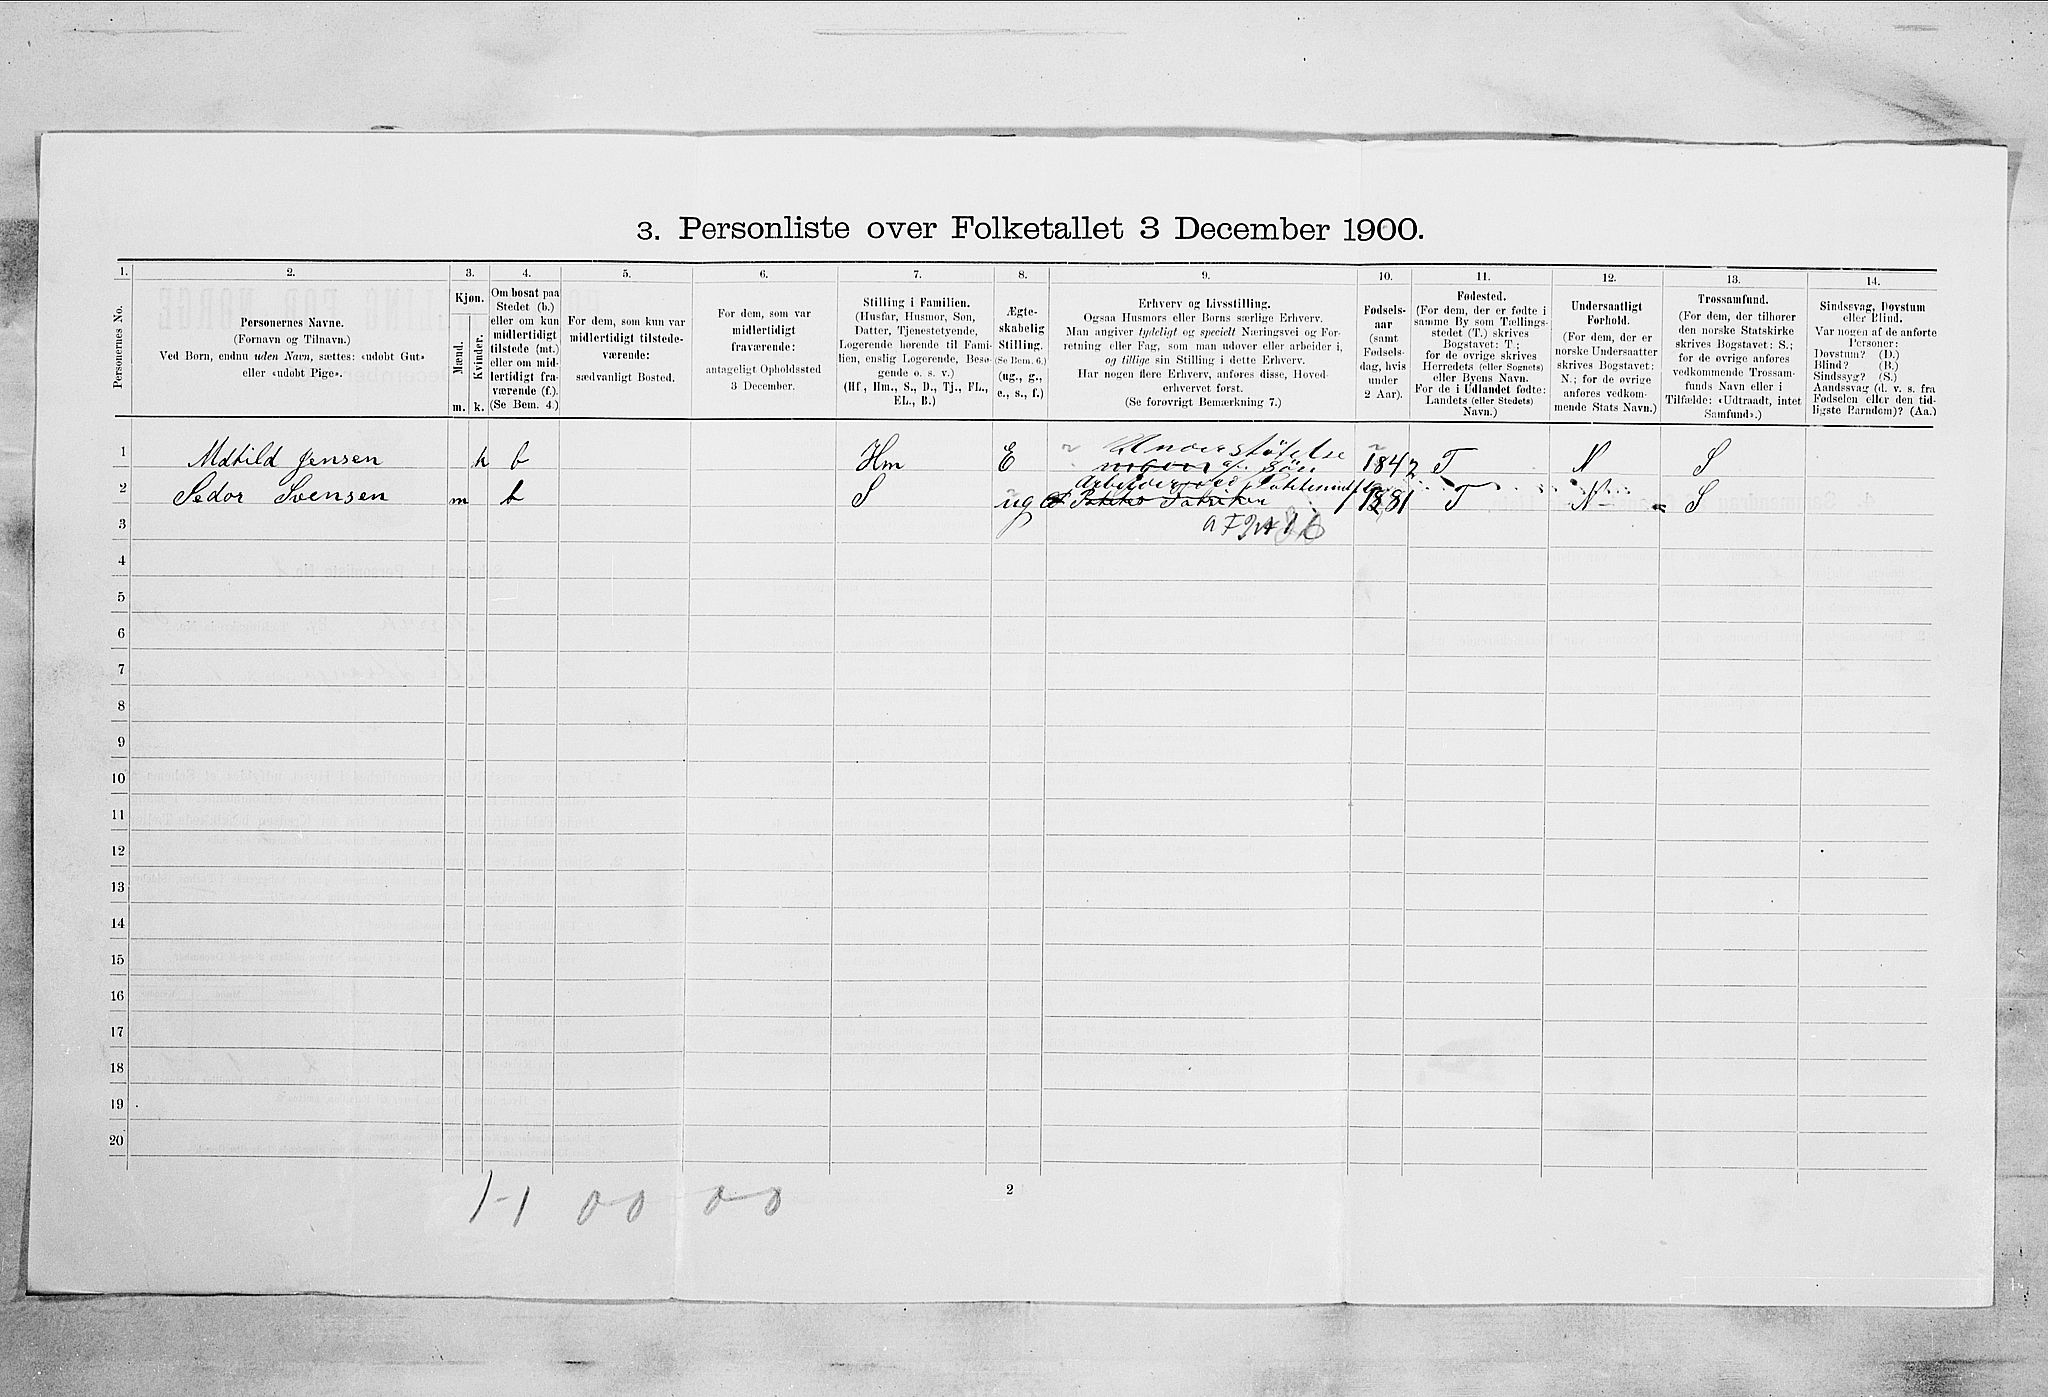 3. Personliste over Folketallet 3 December 1900.
1. 2. 3. 4. 5. 6. 7. 8. 9. 10. 11. 12. 13. 14.
Personernes No.
Personernes Navne.
(Fornavn og Tilnavn.)
Ved Børn, endnu uden Navn, sættes: «udøbt Gut»
eller «udøbt Pige».
Kjøn.
Mænd.
Kvinder.
m. k.
Om bosat paa
Stedet (b.)
eller om kun
midlertidigt
tilstede (mt.)
eller om mid-
lertidigt fra-
værende (f.).
(Se Bem. 4.)
For dem, som kun var
midlertidigt tilstede-
værende:
sædvanligt Bosted.
For dem, som var
midlertidigt
fraværende:
antageligt Opholdssted
3 December.
Stilling i Familien.
(Husfar, Husmor, Søn,
Datter, Tjenestetyende,
Logerende hørende til Fami-
lien, enslig Logerende, Besø-
gende o. s. v.)
(Hf., Hm., S., D., Tj., FL.,
EL., B.)
Ægte-
skabelig
Stilling.
(Se Bem. 6.)
(ug., g.,
e., s., f.)
Erhverv og Livsstilling.
Ogsaa Husmors eller Børns særlige Erhverv.
Man angiver tydeligt og specielt Næringsvei og For-
retning eller Fag, som man udøver eller arbeider i,
og tillige sin Stilling i dette Erhverv.
Har nogen flere Erhverv, anføres disse, Hoved-
erhvervet først.
(Se forøvrigt Bemærkning 7.)
Fødsels-
aar
(samt
Fødsels-
dag, hvis
under
2 Aar).
Fødested.
(For dem, der er fødte i
samme By som Tællings-
stedet (T.) skrives
Bogstavet: T.;
for de øvrige skrives
Herredets (eller Sognets)
eller Byens Navn.
For de i Udlandet fødte:
Landets (eller Stedets)
Navn.)
Undersaatligt
Forhold.
(For dem, der er
norske Undersaatter
skrives Bogstavet:
N.; for de øvrige
anføres vedkom-
mende Stats Navn.)
Trossamfund.
(For dem, der tilhører
den norske Statskirke
skrives Bogstavet: S.;
for de øvrige anføres
vedkommende Trossam-
funds Navn eller i
Tilfælde: «Udtraadt, intet
Samfund».)
Sindssvag, Døvstum
eller Blind.
Var nogen af de anførte
Personer:
Døvstum? (D.)
Blind? (B.)
Sindssyg? (S.)
Aandssvag (d. v. s. fra
Fødselen eller den tid-
ligste Barndom)? (Aa.)
Understøttelse
1 Mathild Jensen k b Hm E af Søn 1847 T N S
Arbeider ved
2 Sedor Svensen m b S ug 1881 T N S
3
4
5
6
7
8
9
10
11
12
13
14
15
16
17
18
19
20
1-1 0-0 0-0
2